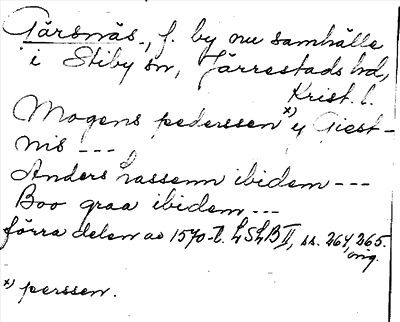 Gärsnäs, f. by nu samhälle
i Stiby sn, Järrestads hd,
Krist. l.
Mogens pederssen x) y Giest-
nis ---
Anders Lassenn ibidem ---
Boo graa ibidem ---
förra delen av 1570-t. LSLB II, ss. 264, 265.
orig.
x) perssen.